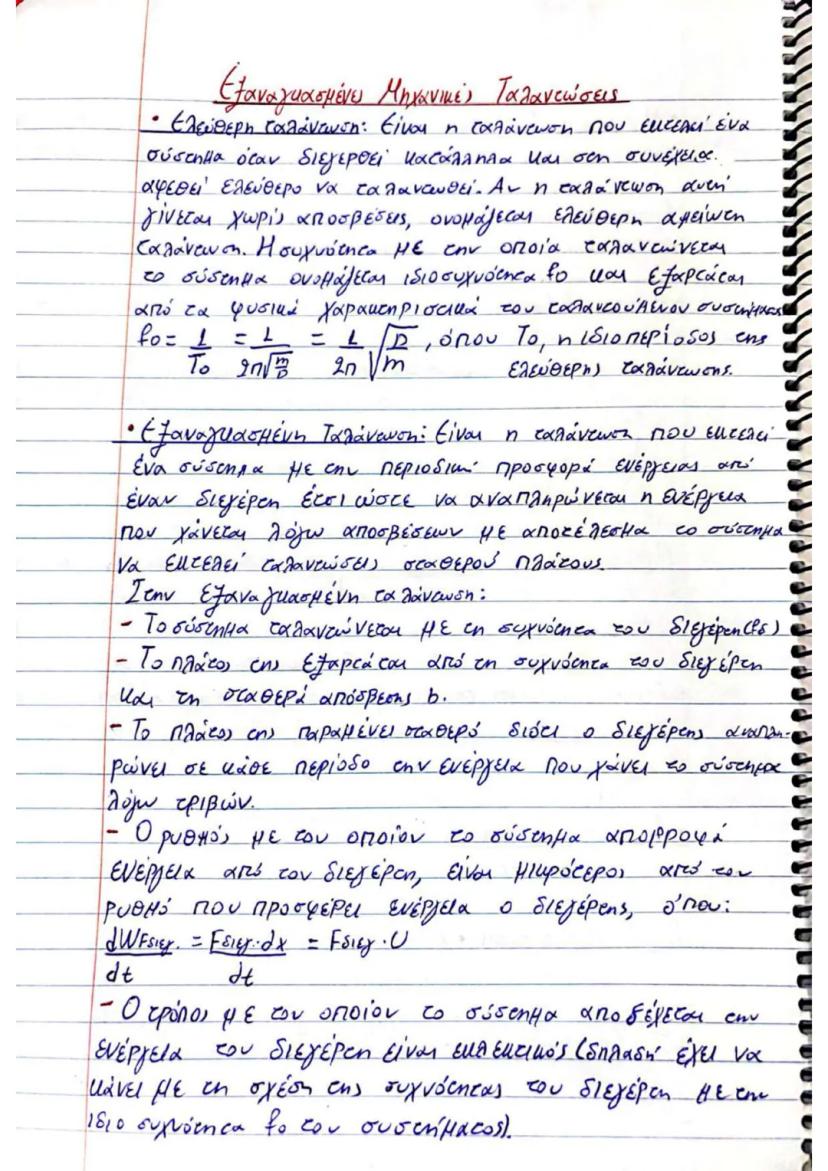 Εξαναγκασμένες Μηχανικές Ταλαντώσεις
• Ελεύθερη ταλάντωση: Είναι η ταλάντωση που εκτελεί ένα
σύστημα όταν διεγερθεί κατάλληλα και στη συνέχεια
αφεθεί ελεύθερο να ταλαντωθεί. Αν η ταλάντωση αυτή
γίνεται χωρίς αποσβέσεις, ονομάζεται ελεύθερη αμείωτη
ταλάντωση. Η συχνότητα με την οποία ταλαντώνεται
το σύστημα ονομάζεται ιδιοσυχνότητα fo και εξαρτάται
από τα φυσικά χαρακτηριστικά του ταλαντούμενου συστήματος
fo = 1/To = 1/2π√(m/D) = 1/2π √(D/m), όπου To, η ιδιοπερίοδος της
ελεύθερης ταλάντωσης.
• Εξαναγκασμένη Ταλάντωση: Είναι η ταλάντωση που εκτελεί
ένα σύστημα με την περιοδική προσφορά ενέργειας από
έναν διεγέρτη έτσι ώστε να αναπληρώνεται η ενέργεια
που χάνεται λόγω αποσβέσεων με αποτέλεσμα το σύστημα
να εκτελεί ταλαντώσεις σταθερού πλάτους.
Στην εξαναγκασμένη ταλάντωση:
- Το σύστημα ταλαντώνεται με τη συχνότητα του διεγέρτη (fδ)
- Το πλάτος της εξαρτάται από τη συχνότητα του διεγέρτη
και τη σταθερά απόσβεσης b.
- Το πλάτος της παραμένει σταθερό διότι ο διεγέρτης αναπλη-
ρώνει σε κάθε περίοδο την ενέργεια που χάνει το σύστημα
λόγω τριβών.
- Ο ρυθμός με τον οποίον το σύστημα απορροφά
ενέργεια από τον διεγέρτη, είναι μικρότερος από τον
ρυθμό που προσφέρει ενέργεια ο διεγέρτης, όπου:
dWFδιεγ./dt = Fδιεγ.dx/dt = Fδιεγ · U
- Ο τρόπος με τον οποίον το σύστημα αποδέχεται την
ενέργεια του διεγέρτη είναι εκλεκτικός (δηλαδή έχει να
κάνει με τη σχέση της συχνότητας του διεγέρτη με την
ιδιοσυχνότητα fo του συστήματος).